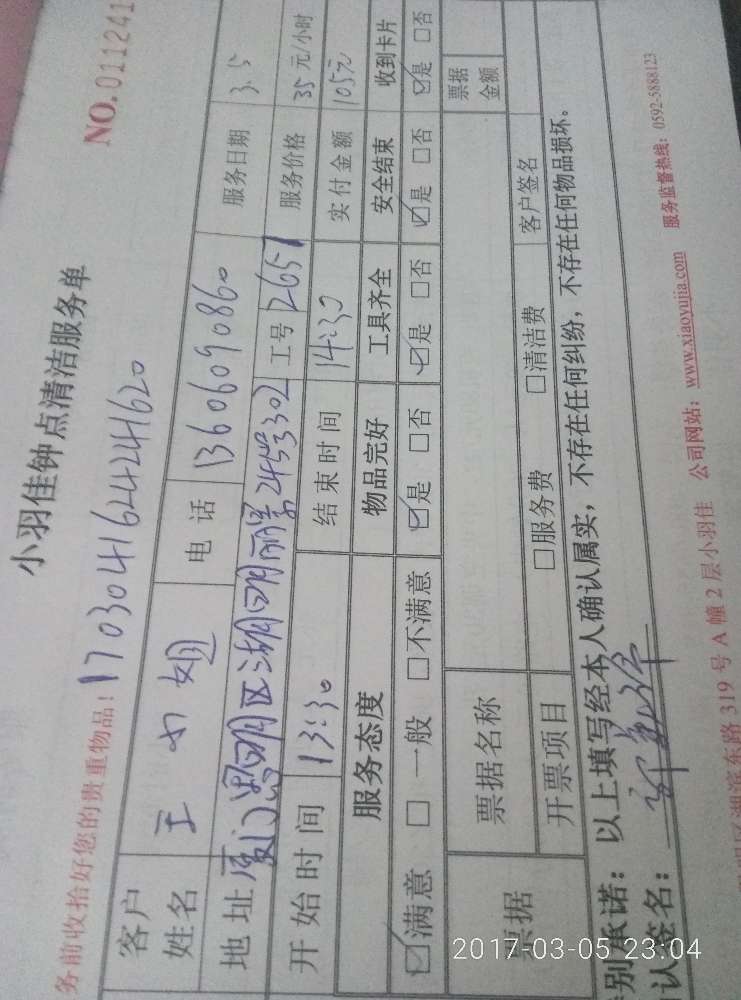 小羽佳钟点清洁服务单
NO.011241
务前收拾好您的贵重物品! 170304162424241620
客户姓名 王小姐 电话 13606090860 服务日期 3.5
地址 厦门思明区湖明 24号302 工号 2657 服务价格 35元/小时
开始时间 13:30 结束时间 14:30 实付金额 105元
服务态度 物品完好 工具齐全 安全结束 收到卡片
☑满意 □一般 □不满意 ☑是 □否 ☑是 □否 ☑是 □否 ☑是 □否
票据 票据名称 票据金额
开票项目 □服务费 □清洁费 客户签名
别承诺:以上填写经本人确认属实,不存在任何纠纷,不存在任何物品损坏。
认签名:
湖滨东路319号A幢2层小羽佳 公司网站:www.xiaoyujia.com 服务监督热线:0592-5888123
2017-03-05 23:04